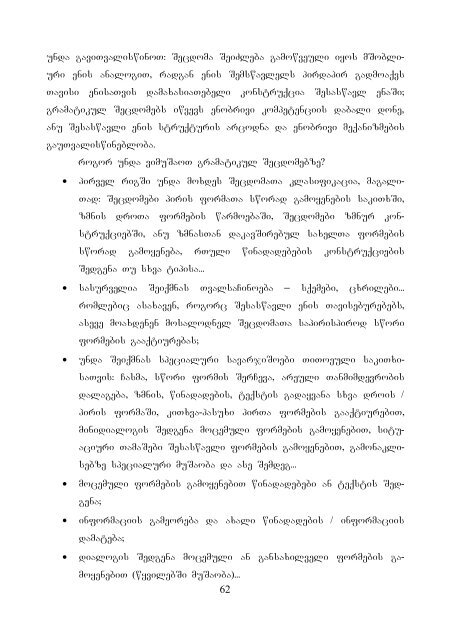 უნდა გავითვალისწინოთ: შეცდომა შეიძლება გამოწვეული იყოს მშობლი-
ური ენის ანალოგით, რადგან ენის შემსწავლელს პირდაპირ გადმოაქვს
თავისი ენისათვის დამახასიათებელი კონსტრუქცია შესასწავლ ენაში;
გრამატიკულ შეცდომებს იწვევს ენობრივი კომპეტენციის დაბალი დონე,
ანუ შესასწავლი ენის სტრუქტურის არცოდნა და ენობრივი მექანიზმების
გაუთვალისწინებლობა.
როგორ უნდა ვიმუშაოთ გრამატიკულ შეცდომებზე?
• პირველ რიგში უნდა მოხდეს შეცდომათა კლასიფიკაცია, მაგალი-
თად: შეცდომები პირის ფორმათა სწორად გამოყენების საკითხში,
ზმნის დროთა ფორმების წარმოებაში, შეცდომები ზმნურ კონ-
სტრუქციებში, ანუ ზმნასთან დაკავშირებულ სახელთა ფორმების
სწორად გამოყენება, რთული წინადადებების კონსტრუქციების
შედგენა თუ სხვა ტიპისა...
• სასურველია შეიქმნას თვალსაჩინოება – სქემები, ცხრილები...
რომლებიც ასახავენ, როგორც შესასწავლი ენის თავისებურებებს,
ასევე მოახდენენ მოსალოდნელ შეცდომათა საპირისპიროდ სწორი
ფორმების გააქტიურებას;
• უნდა შეიქმნას სპეციალური სავარჯიშოები თითოეული საკითხი-
სათვის: ჩასმა, სწორი ფორმის შერჩევა, არეული თანმიმდევრობის
დალაგება, ზმნის, წინადადების, ტექსტის გადაყვანა სხვა დროის /
პირის ფორმაში, კითხვა-პასუხი პირთა ფორმების გააქტიურებით,
მინიდიალოგის შედგენა მოცემული ფორმების გამოყენებით, სიტუ-
აციური თამაშები შესასწავლი ფორმების გამოყენებით, გამონაკლი-
სებზე სპეციალური მუშაობა და ასე შემდეგ...
• მოცემული ფორმების გამოყენებით წინადადებები ან ტექსტის შედ-
გენა;
• ინფორმაციის გამეორება და ახალი წინადადების / ინფორმაციის
დამატება;
• დიალოგის შედგენა მოცემული ან განსახილველი ფორმების გა-
მოყენებით (წყვილებში მუშაობა)...
62